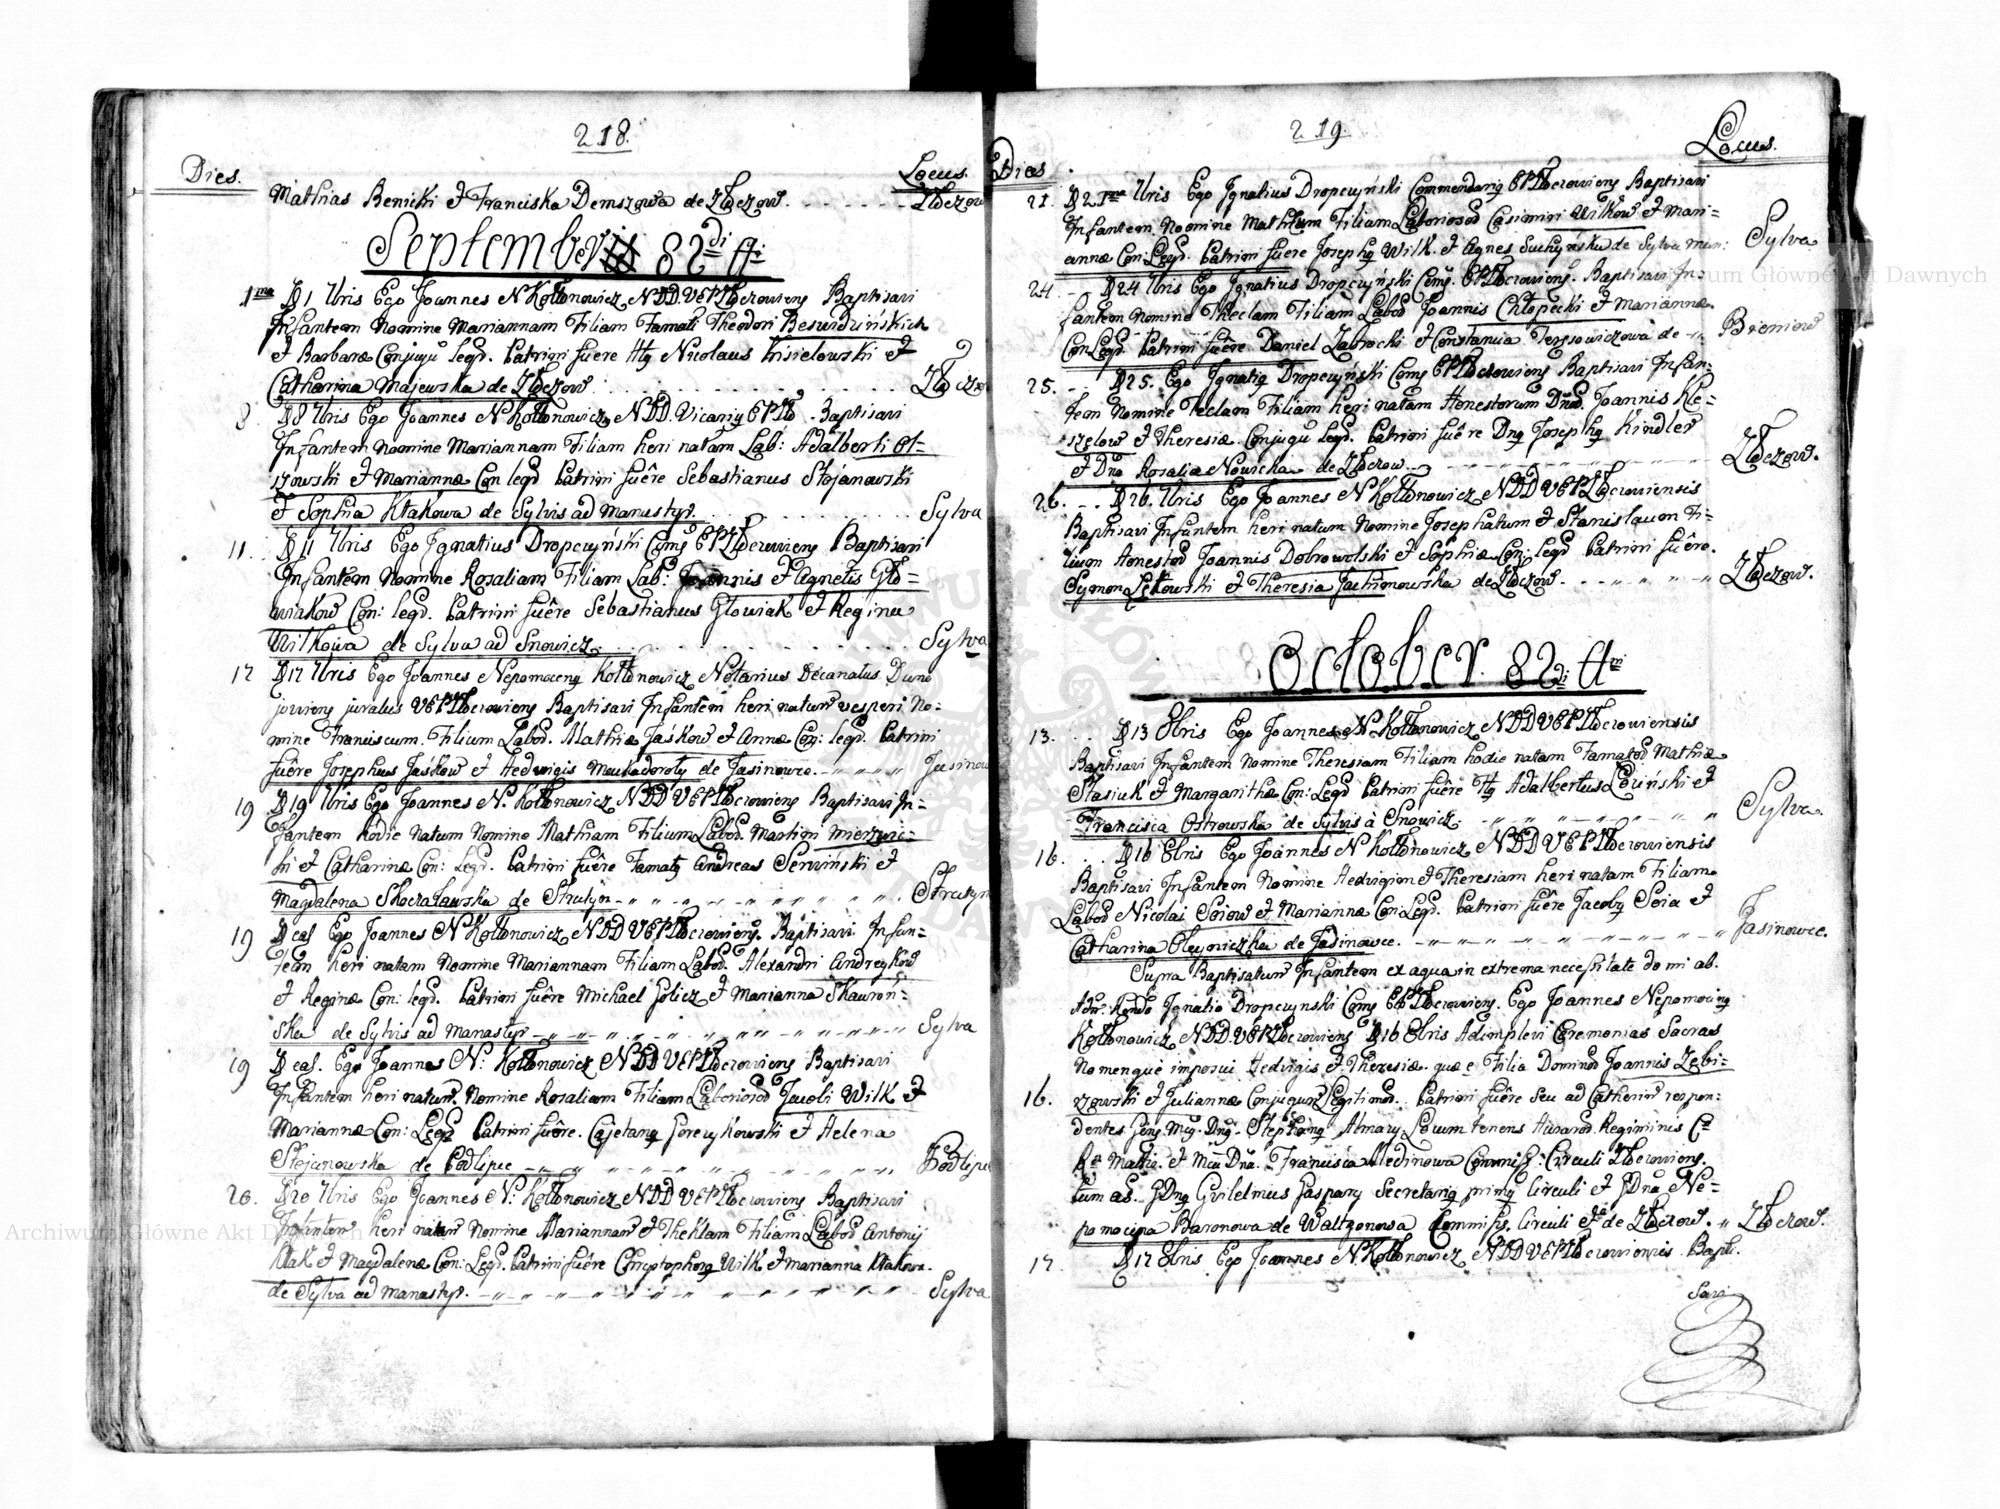 218.
Dies. Locus.
Mathias Benicki et Franciska Demszowa de Złoczow. Złoczow
Septembris 82di Ai
1ma D 1 7bris Ego Joannes N Kołtonowicz NDD. VEPZłoczowiens Baptisavi
Infantem Nomine Mariannam Filiam Famati Theodori
et Barbaræ Conjugũ legd. Patrini fuere Nicolaus Kisielowski et
Catharina Majewska de Złoczow. Złoczow
8. D8 7bris Ego Joannes N Kołtonowicz NDD. Vicarig EPZło. Baptisavi
Infantem Nomine Mariannam Filiam heri natam Lab: Adalberti Ol=
szowski et Mariannæ Con legd Patrini fuêre Sebastianus Stojanowski
et Sophia Kłakowa de Sylvis ad Manastyr. Sylva
11. D11 7bris Ego Ignatius Dropczyński Coms EPZłoczowiens Baptisavi
Infantem Nomine Rosaliam Filiam Lab: Joannis et Agnetis Gło=
wiakow Con: legd. Patrini fuêre Sebastianus Głowiak et Regina
Witkowa de Sylva ad Snowicz. Sylva
17 D17 7bris Ego Joannes Nepomoceng Kołtonowicz Notarius Decanatus Duno
joviens juratus VEPZłoczowiens Baptisavi Infantem heri natum vesperi No=
mine Franciscum. Filium Labod. Mathiæ Jaśkow et Annæ Con: legd. Patrini
fuêre Josephus Jaśkow et Hedvigis de Jasinowce. Jasinow
19 D19 7bris Ego Joannes N. Kołtonowicz NDD VEPZłoczowiens Baptisavi In=
fantem hodie natum Nomine Mathiam Filium Labod. Martini Mierzwic=
ki et Catharinæ Con: Legd. Patrini fuêre Famatg Andreas Serwiński et
Magdalena de Strutyn Strutyn
19 D eal Ego Joannes N Kołtonowicz NDD VEPZłoczowiens. Baptisavi Infan=
tem heri natam Nomine Mariannam Filiam Labod. Alexandri Andreykow
et Reginæ Con: legd. Patrini fuêre Michael Golicz et Marianna Skawron=
ska de Sylvis ad Manastyr Sylva
19 D eal. Ego Joannes N: Kołtonowicz NDD VEPZłoczowiens Baptisavi
Infantem heri natam Nomine Rosaliam Filiam Laboriosod Jacobi Wilk et
Mariannæ Con: Legd Patrini fuêre. Cajetang Goreczkowski et Helena
Stojanowska de Podlipce Podlipc
20. D20 7bris Ego Joannes N: Kołtonowicz NDD VEPZłoczowiens Baptisavi
Infantem heri natam Nomine Mariannam et Theklam Filiam Labod Antonij
Kłak et Magdalenæ Con: Legd. Patrini fuêre Christophorg Wilk et Marianna Kłakowa.
de Sylva ad Manastyr. Sylva
219.
Dies Locus.
21. D21ma 7bris Ego Ignatius Dropczyński Commendarig EPZłoczowiens Baptisavi
Infantem Nomine Matheum Filium Laboriosod Casimiri Wilkow et Mari=
annæ Con: Legd. Patrini fuere Josephg Wilk. et Agnes Suchyńska de Sylva man: Sylva
24 D24 7bris Ego Ignatius Dropczyński Coms. EPZłoczowiens. Baptisavi In=
fantem Nomine Theclam Filiam Labod Joannis Chłopecki et Mariannæ
Con Legd. Patrini fuêre Daniel Zabrocki et Constancia de Bieniow
25. D25. Ego Ignatig Dropczyński Coms EPZłoczowiens Baptisavi Infan=
tem Nomine Teclam Filiam heri natam Honestorum Dnod. Joannis Kle=
szelow et Theresiæ Conjugũ Legd. Patrini fuêre Dng Josephg Kindler
et Dna Rosalia Nowicka de Złoczow Złoczow.
26. D26. 7bris Ego Joannes N Kołtonowicz NDD VEPZłoczowiensis
Baptisavi Infantem heri natum Nomine Josephatum et Stanislaum Fi=
lium Honestod Joannis Dobrowolski et Sophiæ Con: legd Patrini fuêre.
Symon Lękowski et Theresia Jachimowska de Złoczow. Złoczow.
October. 82di Ani
13. D13 8bris Ego Joannes N Kołtonowicz NDD VEPZłoczowiensis
Baptisavi Infantem Nomine Theresiam Filiam hodie natam Famatod Mathiæ
Stasiuk et Margarithæ Con: Legd Patrini fuêre Adalbertus et
Francisca Ostrowska de Sylvis à Snowicz. Sylva.
16. D16 8bris Ego Joannes N Kołtonowicz NDD VEPZłoczowiensis
Baptisavi Infantem Nomine Hedvigim et Theresiam heri natam Filiam
Labod Nicolai Soiow et Mariannæ Con: Legd. Patrini fuêre Jacobg Soia et
Catharina Oleyniczka de Jasinowce. Jasinowce.
Supra Baptisatum Infantem ex aqua in extrema necessitate domi ab.
Adm: Rendo Ignatio Dropczynski Coms EPZłoczowiens. Ego Joannes Nepomoceng
Kołtonowicz NDD. VEPZłoczowiens D16 8bris Adimplevi Ceremonias Sacras
Nomenque imposui Hedvigis et Theresiæ. quæ e Filia Dominod Joannis Zebi=
16. rzowski et Juliannæ Conjugum Legitimod. Patrini fuêre Seu ad Catherisum respon:
dentes Gens. Mcg. Dng. Stephang Almary Locum tenens Husarod Regiminis Cæ
Ræ Mattis. et Mca Dna. Francisca Medinowa Commiss: Circuli Złoczowiens.
tum as. JDng Gvilelmius Gaspary Secretarig primg Circuli et JDna Ne=
pomocena Baronowa de Waltzonowa Commiss. Circuli de Złoczow. Złoczow.
17. D17 8bris Ego Joannes N. Kołtonowicz NDD VEPZłoczowiensis Bapti.
savi
Archiwum Główne Akt Dawnych